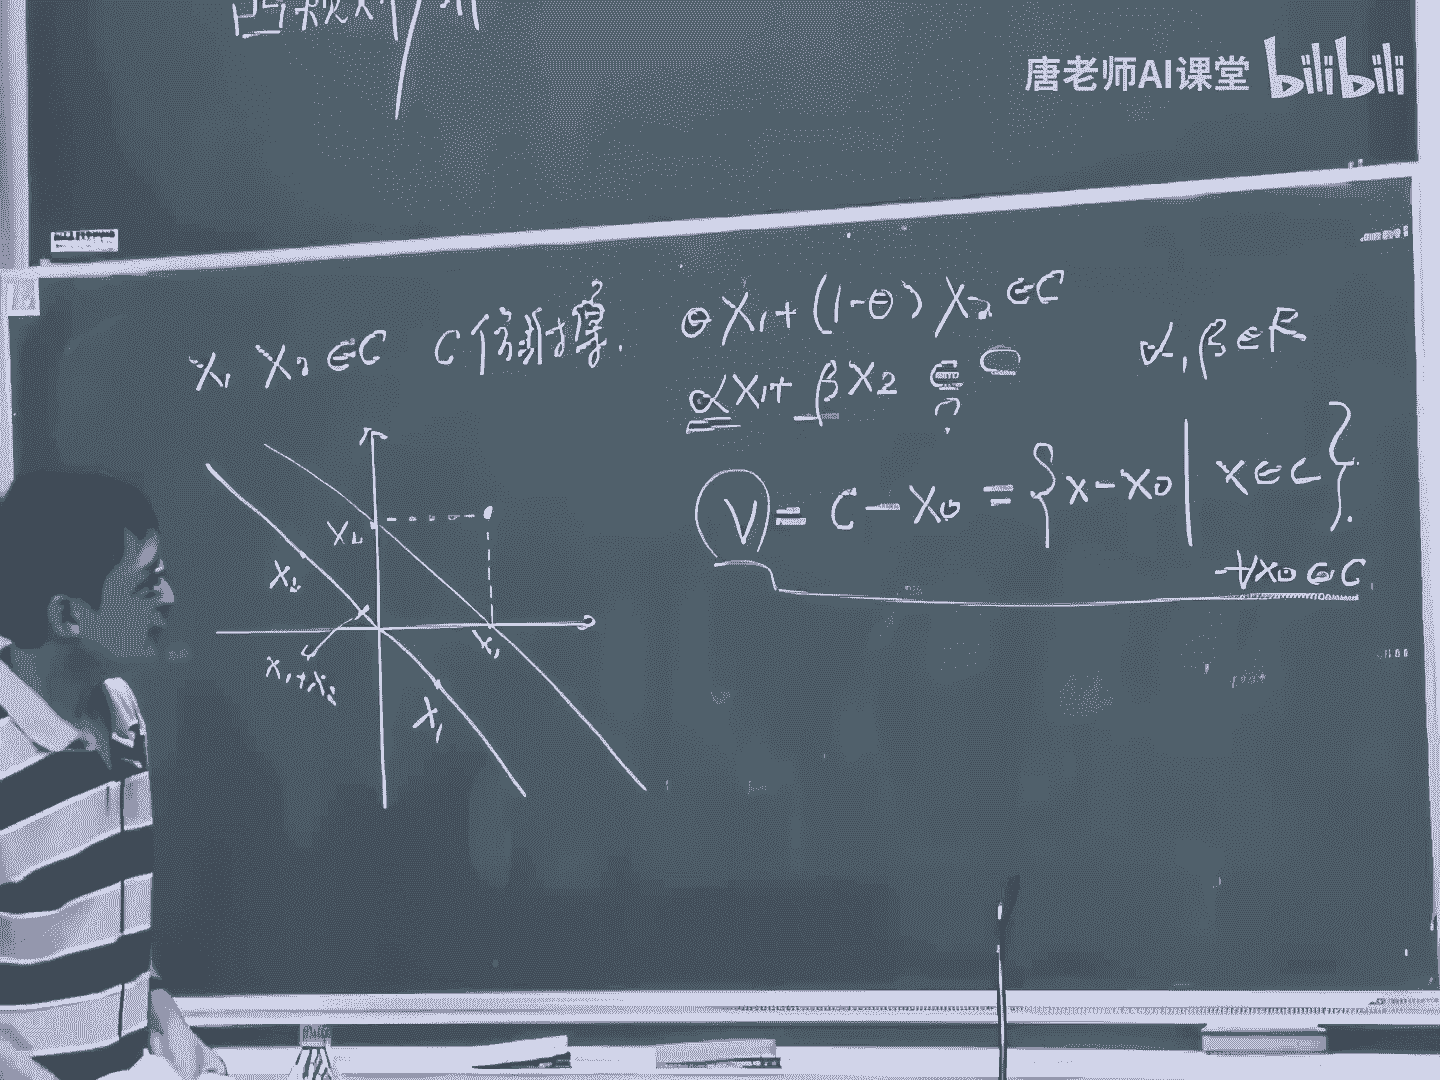 唐老师AI课堂 bilibili
x₁ x₂ ∈C C 仿射集.
θx₁+(1-θ)x₂ ∈C
αx₁+βx₂ ∈ C
?
α,β∈R
V = C-x₀ = {x-x₀ | x∈C}.
∀x₀∈C
x₂
x₁
x₂
x₁+x₂
x₁